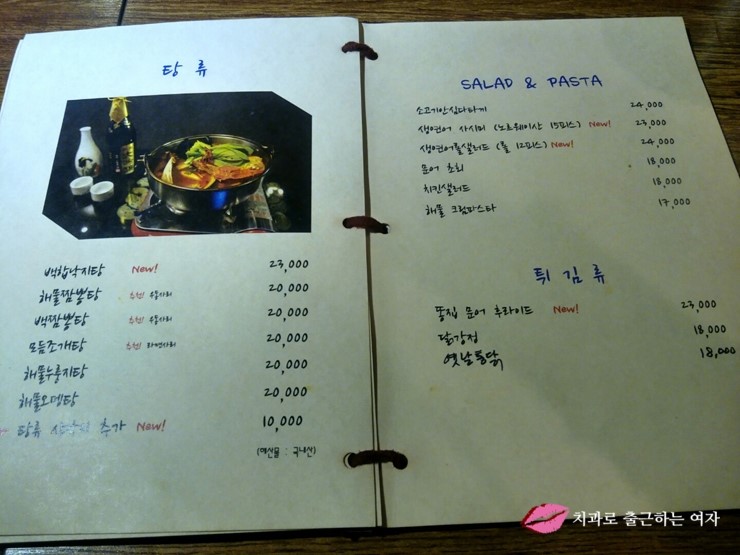 탕 류
백합낙지탕 New! 23,000
해물짬뽕탕 추천! 우동사리 20,000
백짬뽕탕 추천! 우동사리 20,000
모듬조개탕 추천! 라면사리 20,000
해물누룽지탕 20,000
해물오뎅탕 20,000
탕류 추가 New! 10,000
(해산물 : 국내산)
SALAD & PASTA
소고기안심다다끼 24,000
생연어 사시미 (노르웨이산 15피스) New! 23,000
생연어롤샐러드 (롤 12피스) New! 24,000
문어 초회 18,000
치킨샐러드 18,000
해물 크림파스타 17,000
튀 김 류
똥집 문어 후라이드 New! 23,000
닭강정 18,000
옛날통닭 18,000
치과로 출근하는 여자